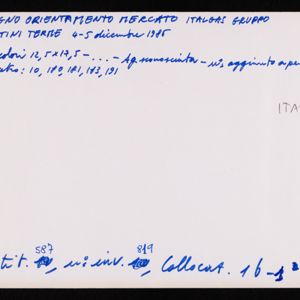 GNO ORIENTAMENTO MERCATO ITALGAS GRUPPO
TINI TERME 4-5 dicembre 1985
colori 12,5x17,5 - ... - Ag. sconosciuta - n°, aggiunto a pe
10, 180, 181, 183, 191
ITA
587 819
tit. , n° inv. , Collocat. 16-1